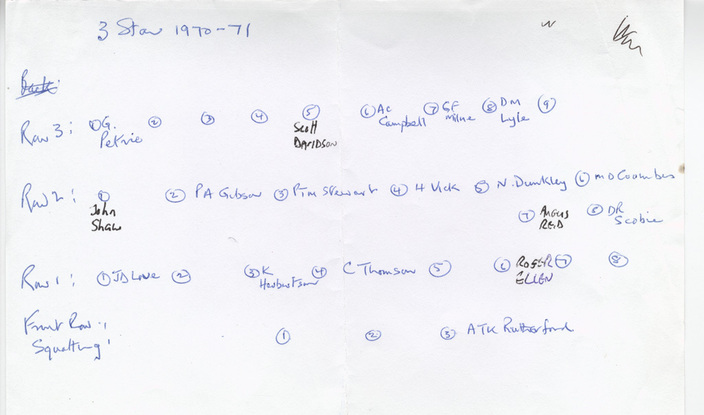 3 Star 1970-71
Back:
Row 3: ① G. Petrie ② ③ ④ ⑤ Scott DAVIDSON ⑥ AC Campbell ⑦ GF Milne ⑧ DM Lyle ⑨
Row 2: ① John Shaw ② P A Gibson ③ P T M Stewart ④ H Vick ⑤ N. Dunkley ⑥ M D Coombes
⑦ ANGUS REID ⑧ DR Scobie
Row 1: ① JD Love ② ③ K Herbertson ④ C Thomson ⑤ ⑥ ROGER ELLEN ⑦ ⑧
Front Row:
Squatting: ① ② ③ ATK Rutherford